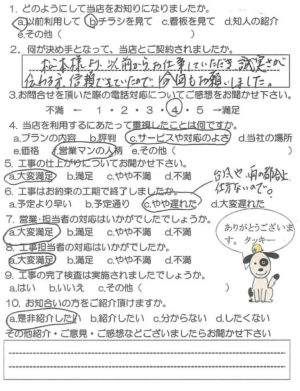 1. どのようにして当店をお知りになりましたか。
a.以前利用して b.チラシを見て c.看板を見て d.知人の紹介
e.その他( )
2. 何が決め手となって、当店とご契約されましたか。
松本様より以前からお仕事していただき誠実さが
伝わる方、信頼できていたので今回もお願いしました。
3.お問合せを頂いた際の電話対応についてご感想をお聞かせ下さい。
不満 ← 1・2・3・4・5 →満足
4. 当店を利用するにあたって重視したことは何ですか。
a.プランの内容 b.評判 c.サービスや対応のよさ d.当社の場所
e.価格 f.営業マンの人柄 e.その他( )
5. 工事の仕上がりについてお聞かせ下さい。
a.大変満足 b.満足 c.やや不満 d.不満
6. 工事はお約束の工期で終了しましたか。
a.予定より早い b.予定通り c.やや遅れた d.大変遅れた
台風や雨の都合上
仕方ないので。
7. 営業・担当者の対応はいかがでしたでしょうか。
a.大変満足 b.満足 c.やや不満 d.不満
8. 工事担当者の対応はいかがでしたか。
a.大変満足 b.満足 c.やや不満 d.不満
9. 工事の完了検査は実施されましたでしょうか。
a.はい b.いいえ c.その他( )
10. お知合いの方をご紹介頂けますか。
a.是非紹介したい b.紹介したい c.分からない d.したくない
その他紹介・ご意見・ご感想などございましたらお聞かせ下さい
ありがとうございま
す。 タッキー